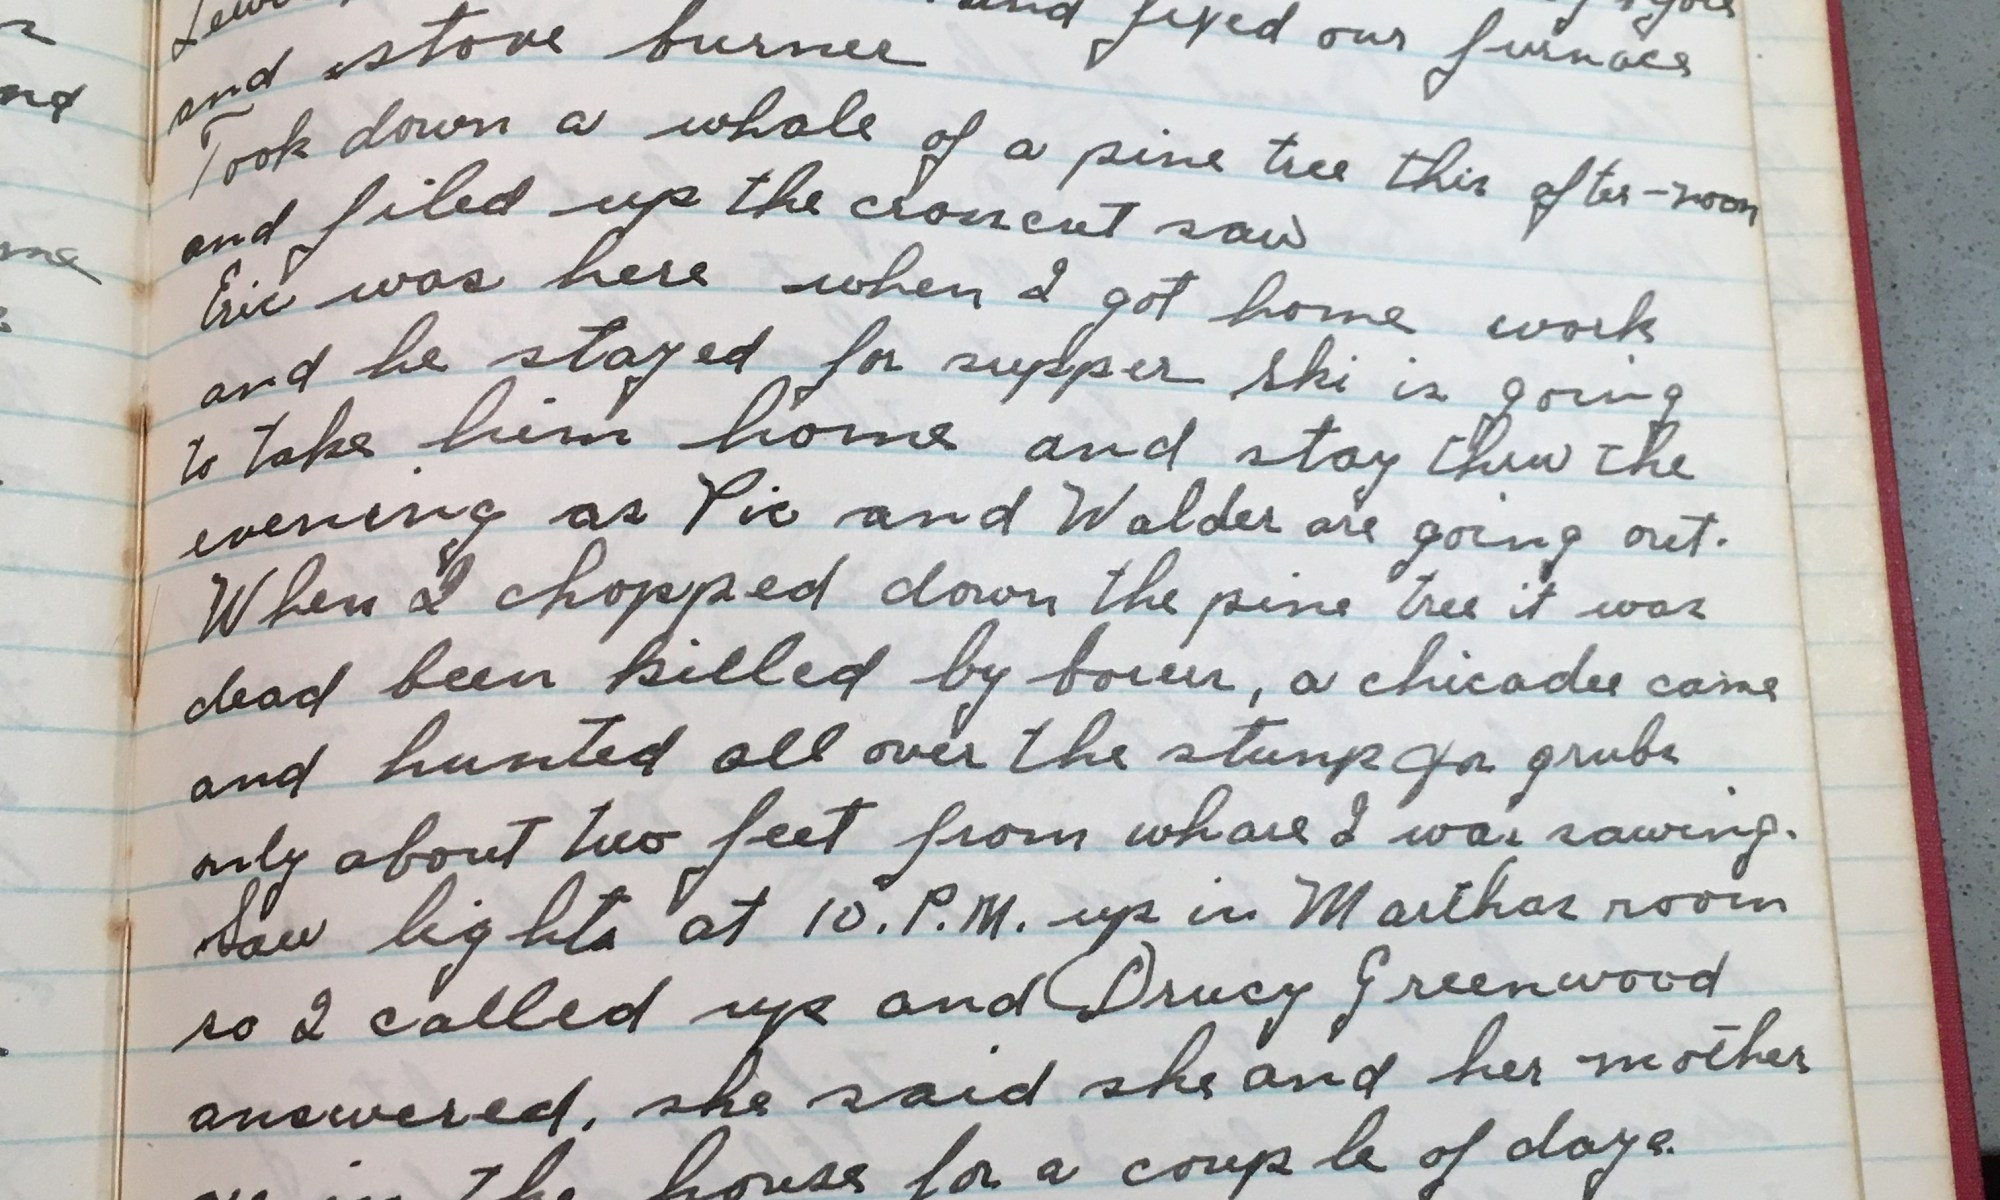 and fixed our furnace
and stove burner
Took down a whale of a pine tree this after-noon
and filed up the croscut saw
Eric was here when I got home work
and he stayed for supper Ski is going
to take him home and stay thru the
evening as Vic and Walder are going out.
When I chopped down the pine tree it was
dead been killed by borers, a chicadee came
and hunted all over the stump for grubs
only about two feet from whare I was sawing.
Saw lights at 10.P.M. up in Marthas room
so I called up and Drucy Greenwood
answered, she said she and her mother
in the house for a couple of days.